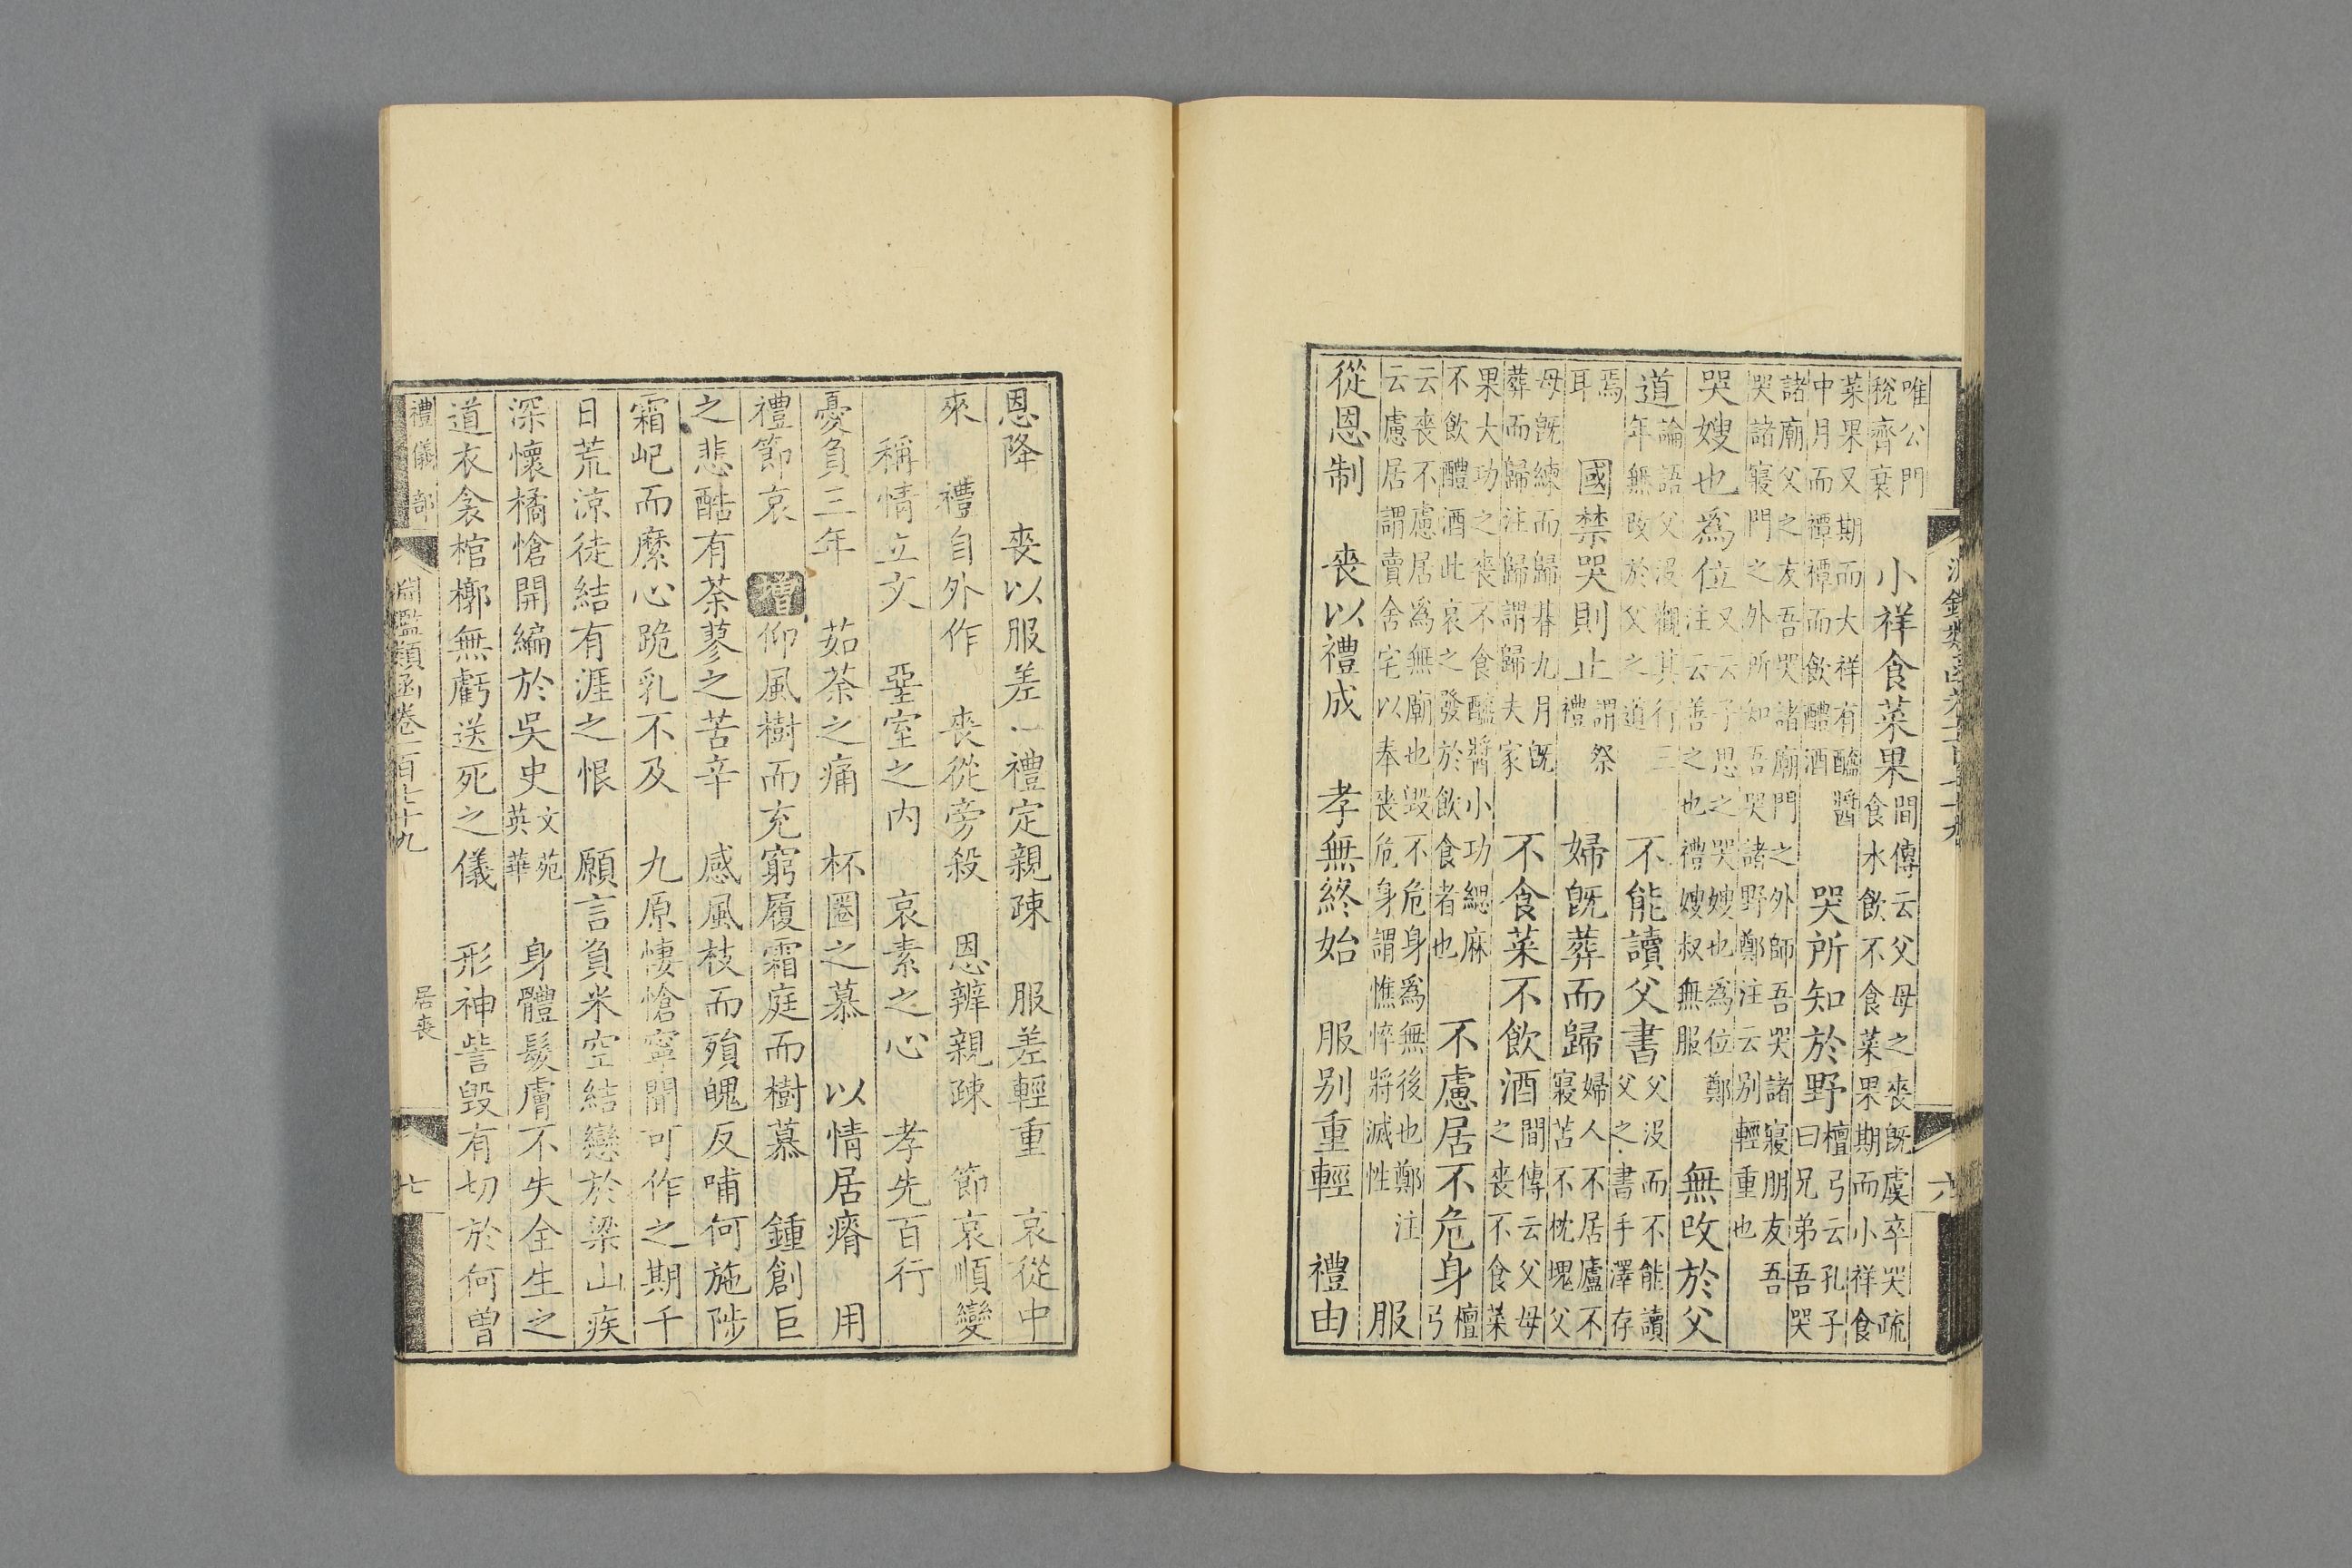 唯公門
稅齊衰
小祥食菜果
間傳云父母之喪既虞卒哭疏
食水飲不食菜果期而小祥食
菜果又期而大祥有醯醬
中月而禫禫而飲醴酒
哭所知於野
檀弓云孔子
曰兄弟吾哭
諸廟父之友吾哭諸廟門之外師吾哭諸寢朋友吾
哭諸寢門之外所知吾哭諸野鄭注云別輕重也
哭嫂也爲位
又云子思之哭嫂也爲位鄭
注云善之也禮嫂叔無服
無改於父
道
論語父沒觀其行三
年無改於父之道
不能讀父書
父沒而不能讀
父之書手澤存
焉
耳
國禁哭則止
謂祭
禮
婦旣葬而歸
婦人不居廬不
寢苫不枕塊父
母旣練而歸朞九月旣
葬而歸注歸謂歸夫家
不食菜不飲酒
間傳云父母
之喪不食菜
果大功之喪不食醯醬小功緦麻
不飲醴酒此哀之發於飲食者也
不慮居不危身
檀
弓
云喪不慮居爲無廟也毀不危身爲無後也鄭注
云慮居謂賣舍宅以奉喪危身謂憔悴將滅性
服
從恩制　喪以禮成　孝無終始　服别重輕　禮由
六
恩降　喪以服差　禮定親疎　服差輕重　哀從中
來　禮自外作　喪從旁殺　恩辨親疎　節哀順變
稱情立文　堊室之内　哀素之心　孝先百行
憂負三年　茹荼之痛　杯圈之慕　以情居瘠　用
禮節哀　增仰風樹而充窮履霜庭而樹慕　鍾創巨
之悲酷有荼蓼之苦辛　感風枝而殞魄反哺何施陟
霜屺而縻心跪乳不及　九原悽愴寧聞可作之期千
日荒涼徒結有涯之恨　願言負米空結戀於梁山疾
深懷橘愴開編於吳史
文苑
英華
身體髮膚不失全生之
道衣衾棺槨無虧送死之儀　形神訾毀有切於何曾
禮儀部
淵鑑類函卷一百七十九
居喪
七